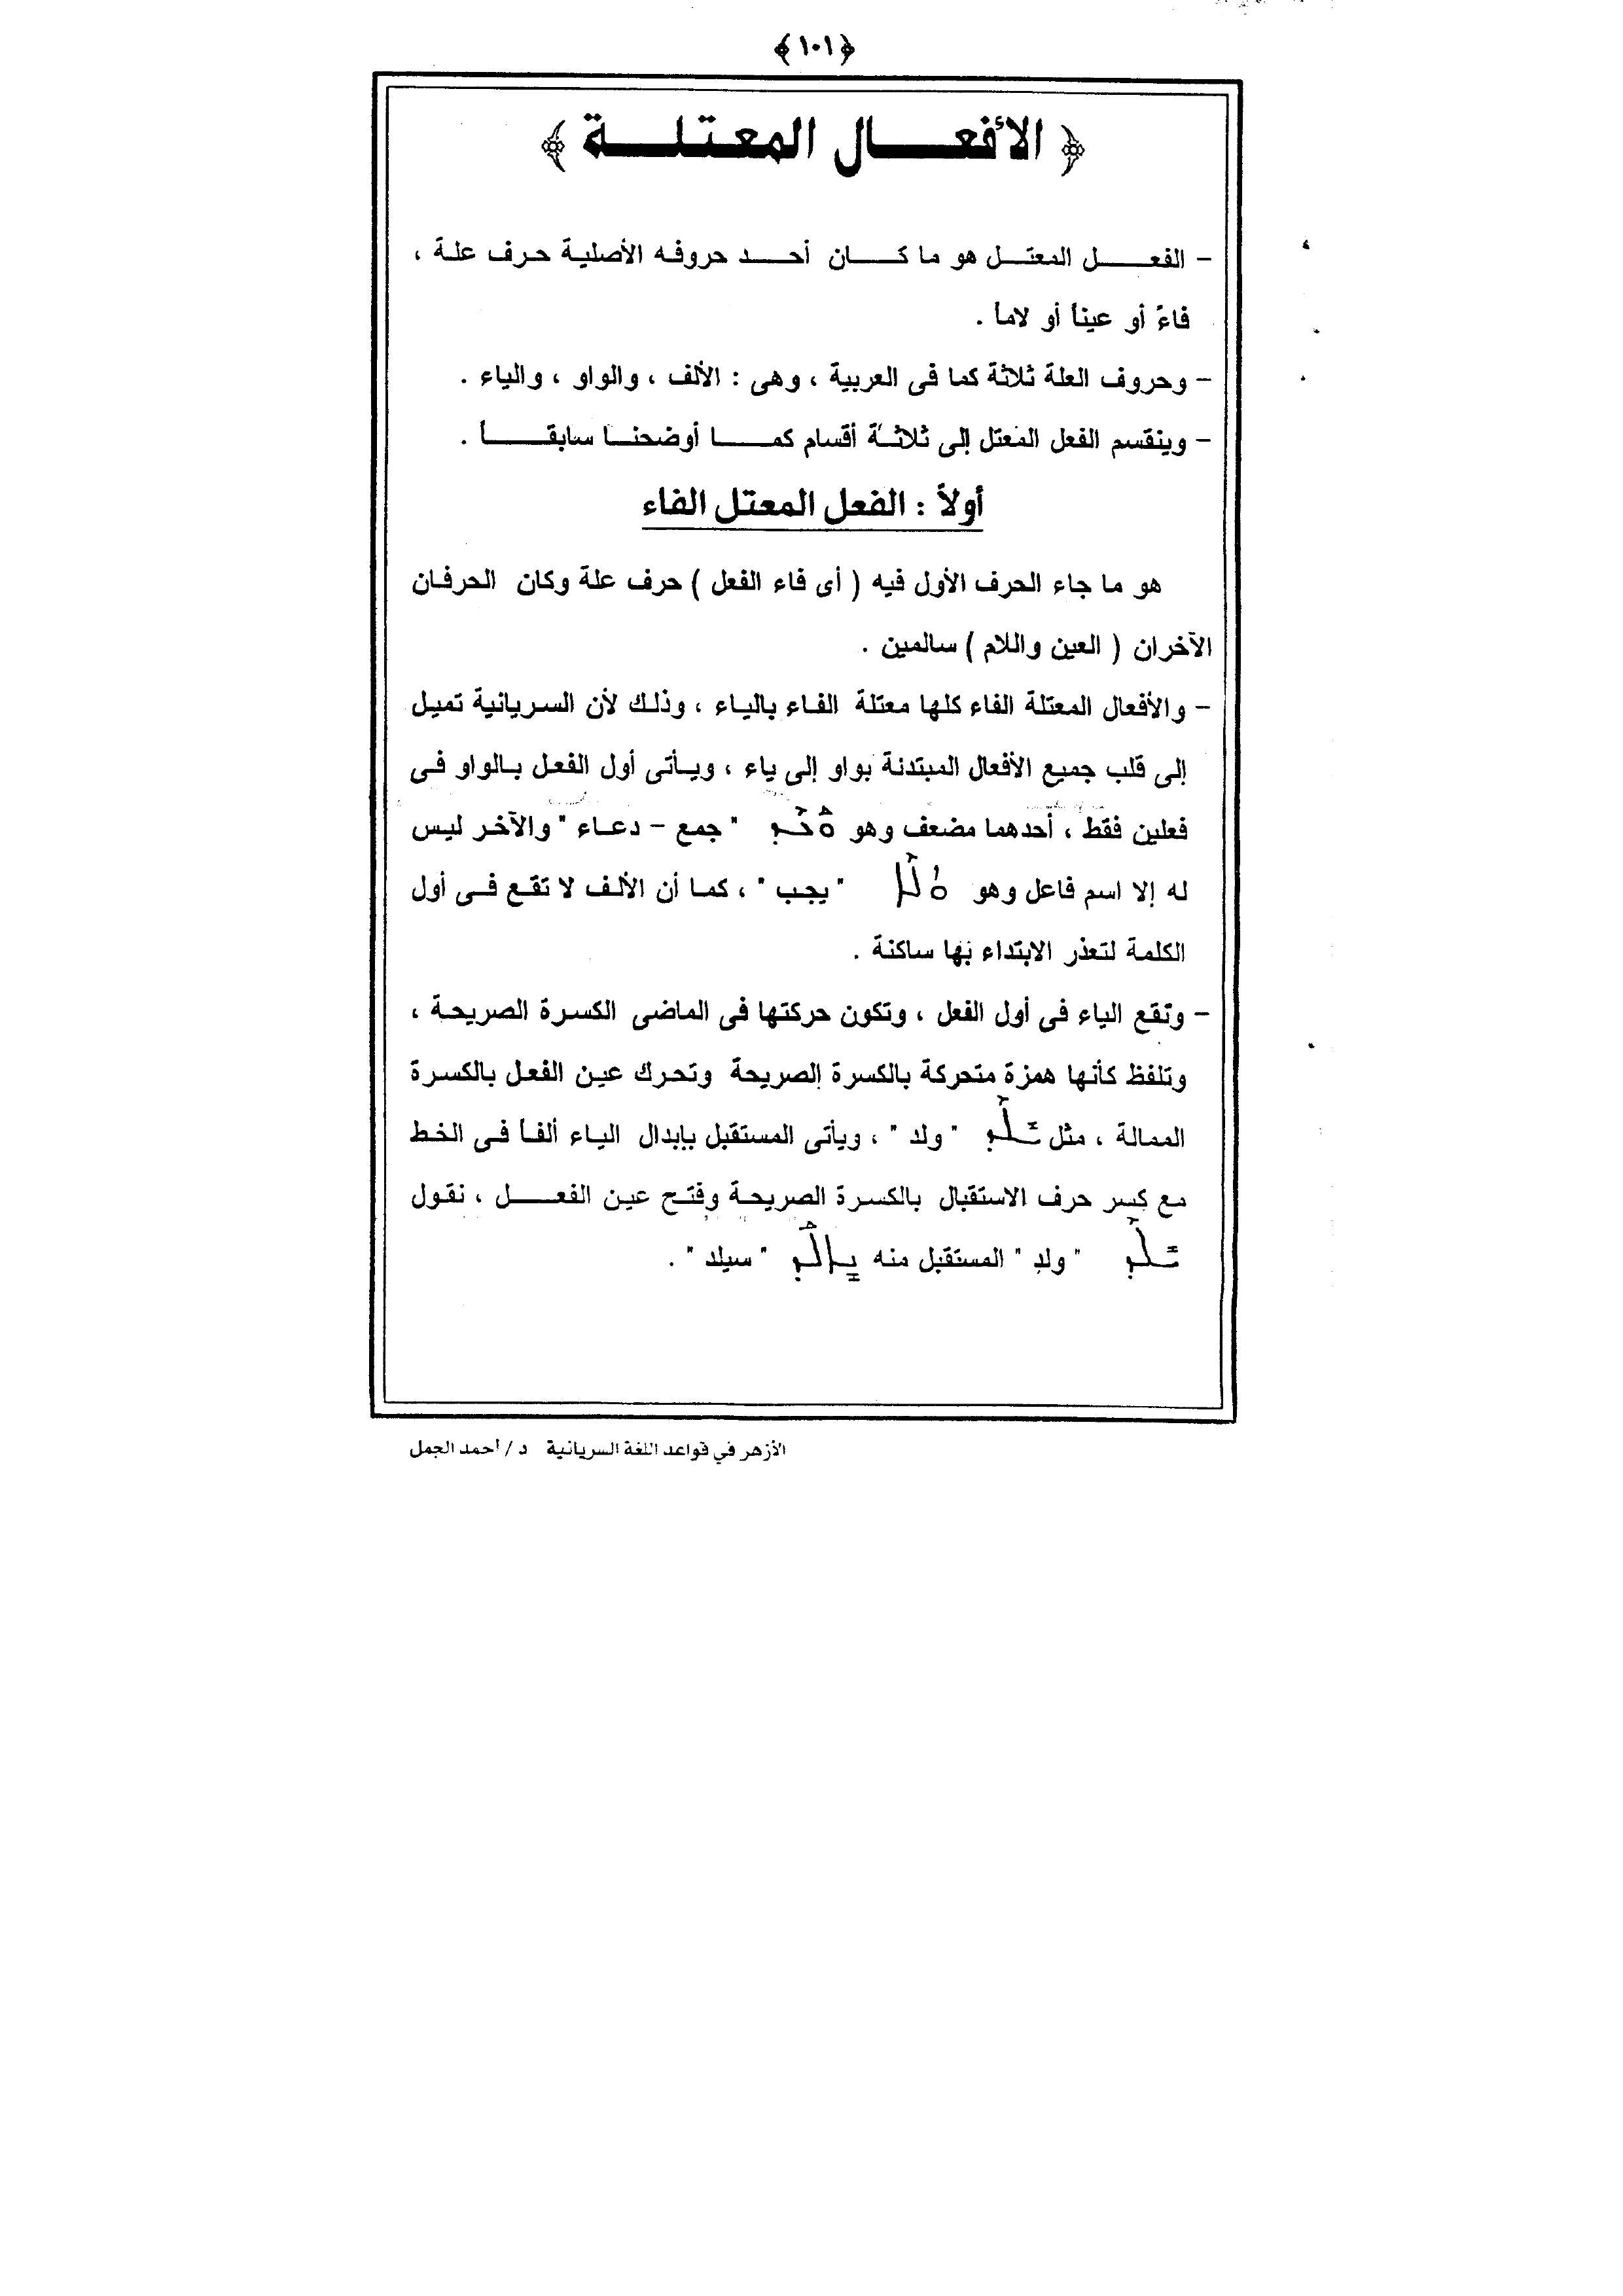 ﴿ ١٠١ ﴾
﴿ الأفعـــال المعـتـلـــة ﴾
– الفعــــل المعتــل هو ما كــــان أحـــد حروفه الأصلية حرف علة ،
فاءً أو عيناً أو لاماً .
– وحروف العلة ثلاثة كما فى العربية ، وهى : الألف ، والواو ، والياء .
– وينقسم الفعل المعتل إلى ثلاثـة أقسام كمـــا أوضحنــا سابقـــاً .
أولاً : الفعل المعتل الفاء
هو ما جاء الحرف الأول فيه ( أى فاء الفعل ) حرف علة وكان الحرفـان
الآخران ( العين واللام ) سالمين .
– والأفعال المعتلة الفاء كلها معتلة الفـاء بالياء ، وذلك لأن السريانية تميل
إلى قلب جميع الأفعال المبتدئة بواو إلى ياء ، ويـأتى أول الفعل بـالواو فـى
فعلين فقط ، أحدهما مضعف وهو ܘܰܥܶܕ " جمع – دعـاء " والآخر ليس
له إلا اسم فاعل وهو ܘܳܠܶܐ " يجب " ، كمـا أن الألف لا تقـع فـى أول
الكلمة لتعذر الابتداء بها ساكنة .
– وتقع الياء فى أول الفعل ، وتكون حركتها فى الماضى الكسرة الصريحة ،
وتلفظ كأنها همزة متحركة بالكسرة الصريحة وتحرك عين الفعل بالكسرة
الممالة ، مثل ܝܺܠܶܕ " ولد " ، ويأتى المستقبل بإبدال الياء ألفاً فـى الخط
مع كسر حرف الاستقبال بالكسرة الصريحة وفتـح عين الفعـــل ، نقول
ܝܺܠܶܕ " ولد " المستقبل منه ܢܺܐܠܰܕ " سيلد " .
الأزهر في قواعد اللغة السريانية د / أحمد الجمل